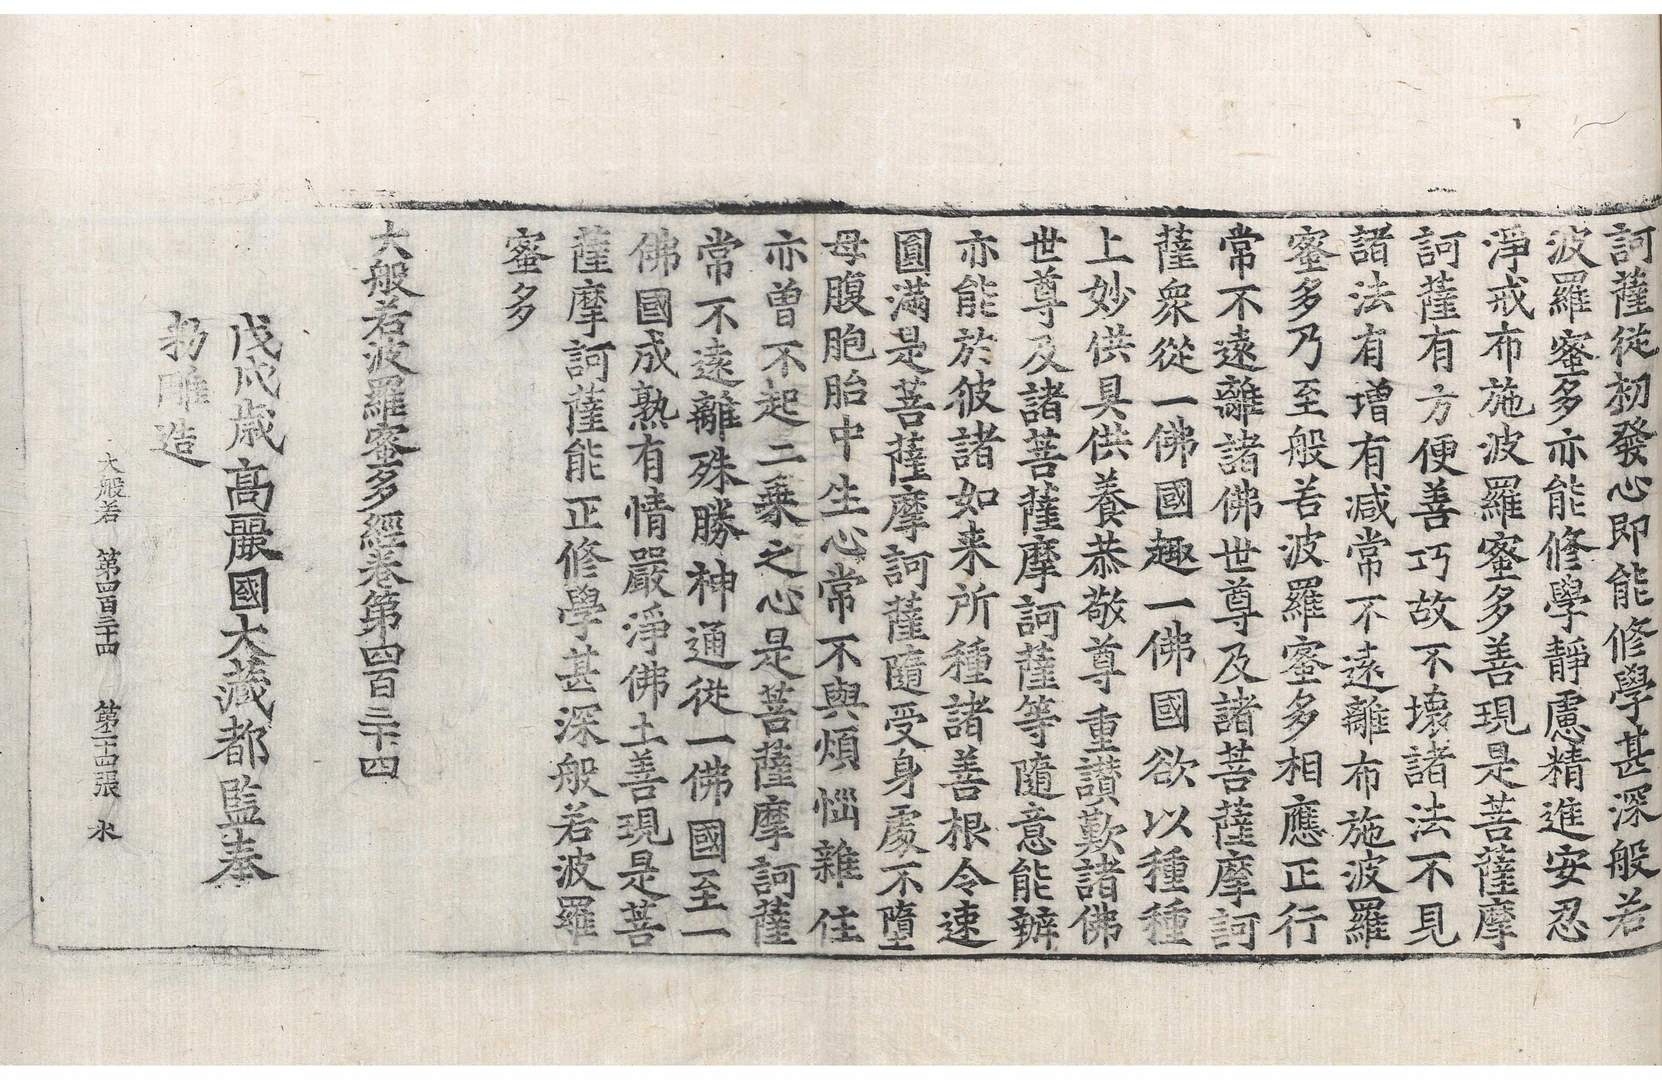 訶薩從初發心即能修學甚深般若
波羅蜜多亦能修學靜慮精進安忍
淨戒布施波羅蜜多善現是菩薩摩
訶薩有方便善巧故不壞諸法不見
諸法有增有减常不遠離布施波羅
蜜多乃至般若波羅蜜多相應正行
常不遠離諸佛世尊及諸菩薩摩訶
薩衆從一佛國趣一佛國欲以種種
上妙供具供養恭敬尊重讃歎諸佛
世尊及諸菩薩摩訶薩等隨意能辦
亦能於彼諸如来所種諸善根令速
圓滿是菩薩摩訶薩隨受身處不墮
母腹胞胎中生心常不與煩惱雜住
亦曾不起二乘之心是菩薩摩訶薩
常不遠離殊勝神通從一佛國至一
佛國成熟有情嚴淨佛土善現是菩
薩摩訶薩能正修學甚深般若波羅
蜜多
大般若波羅蜜多經卷第四百三十四
戊戌歲高麗國大藏都監奉
勑雕造
大般若 第四百三十四 第二十四張 水